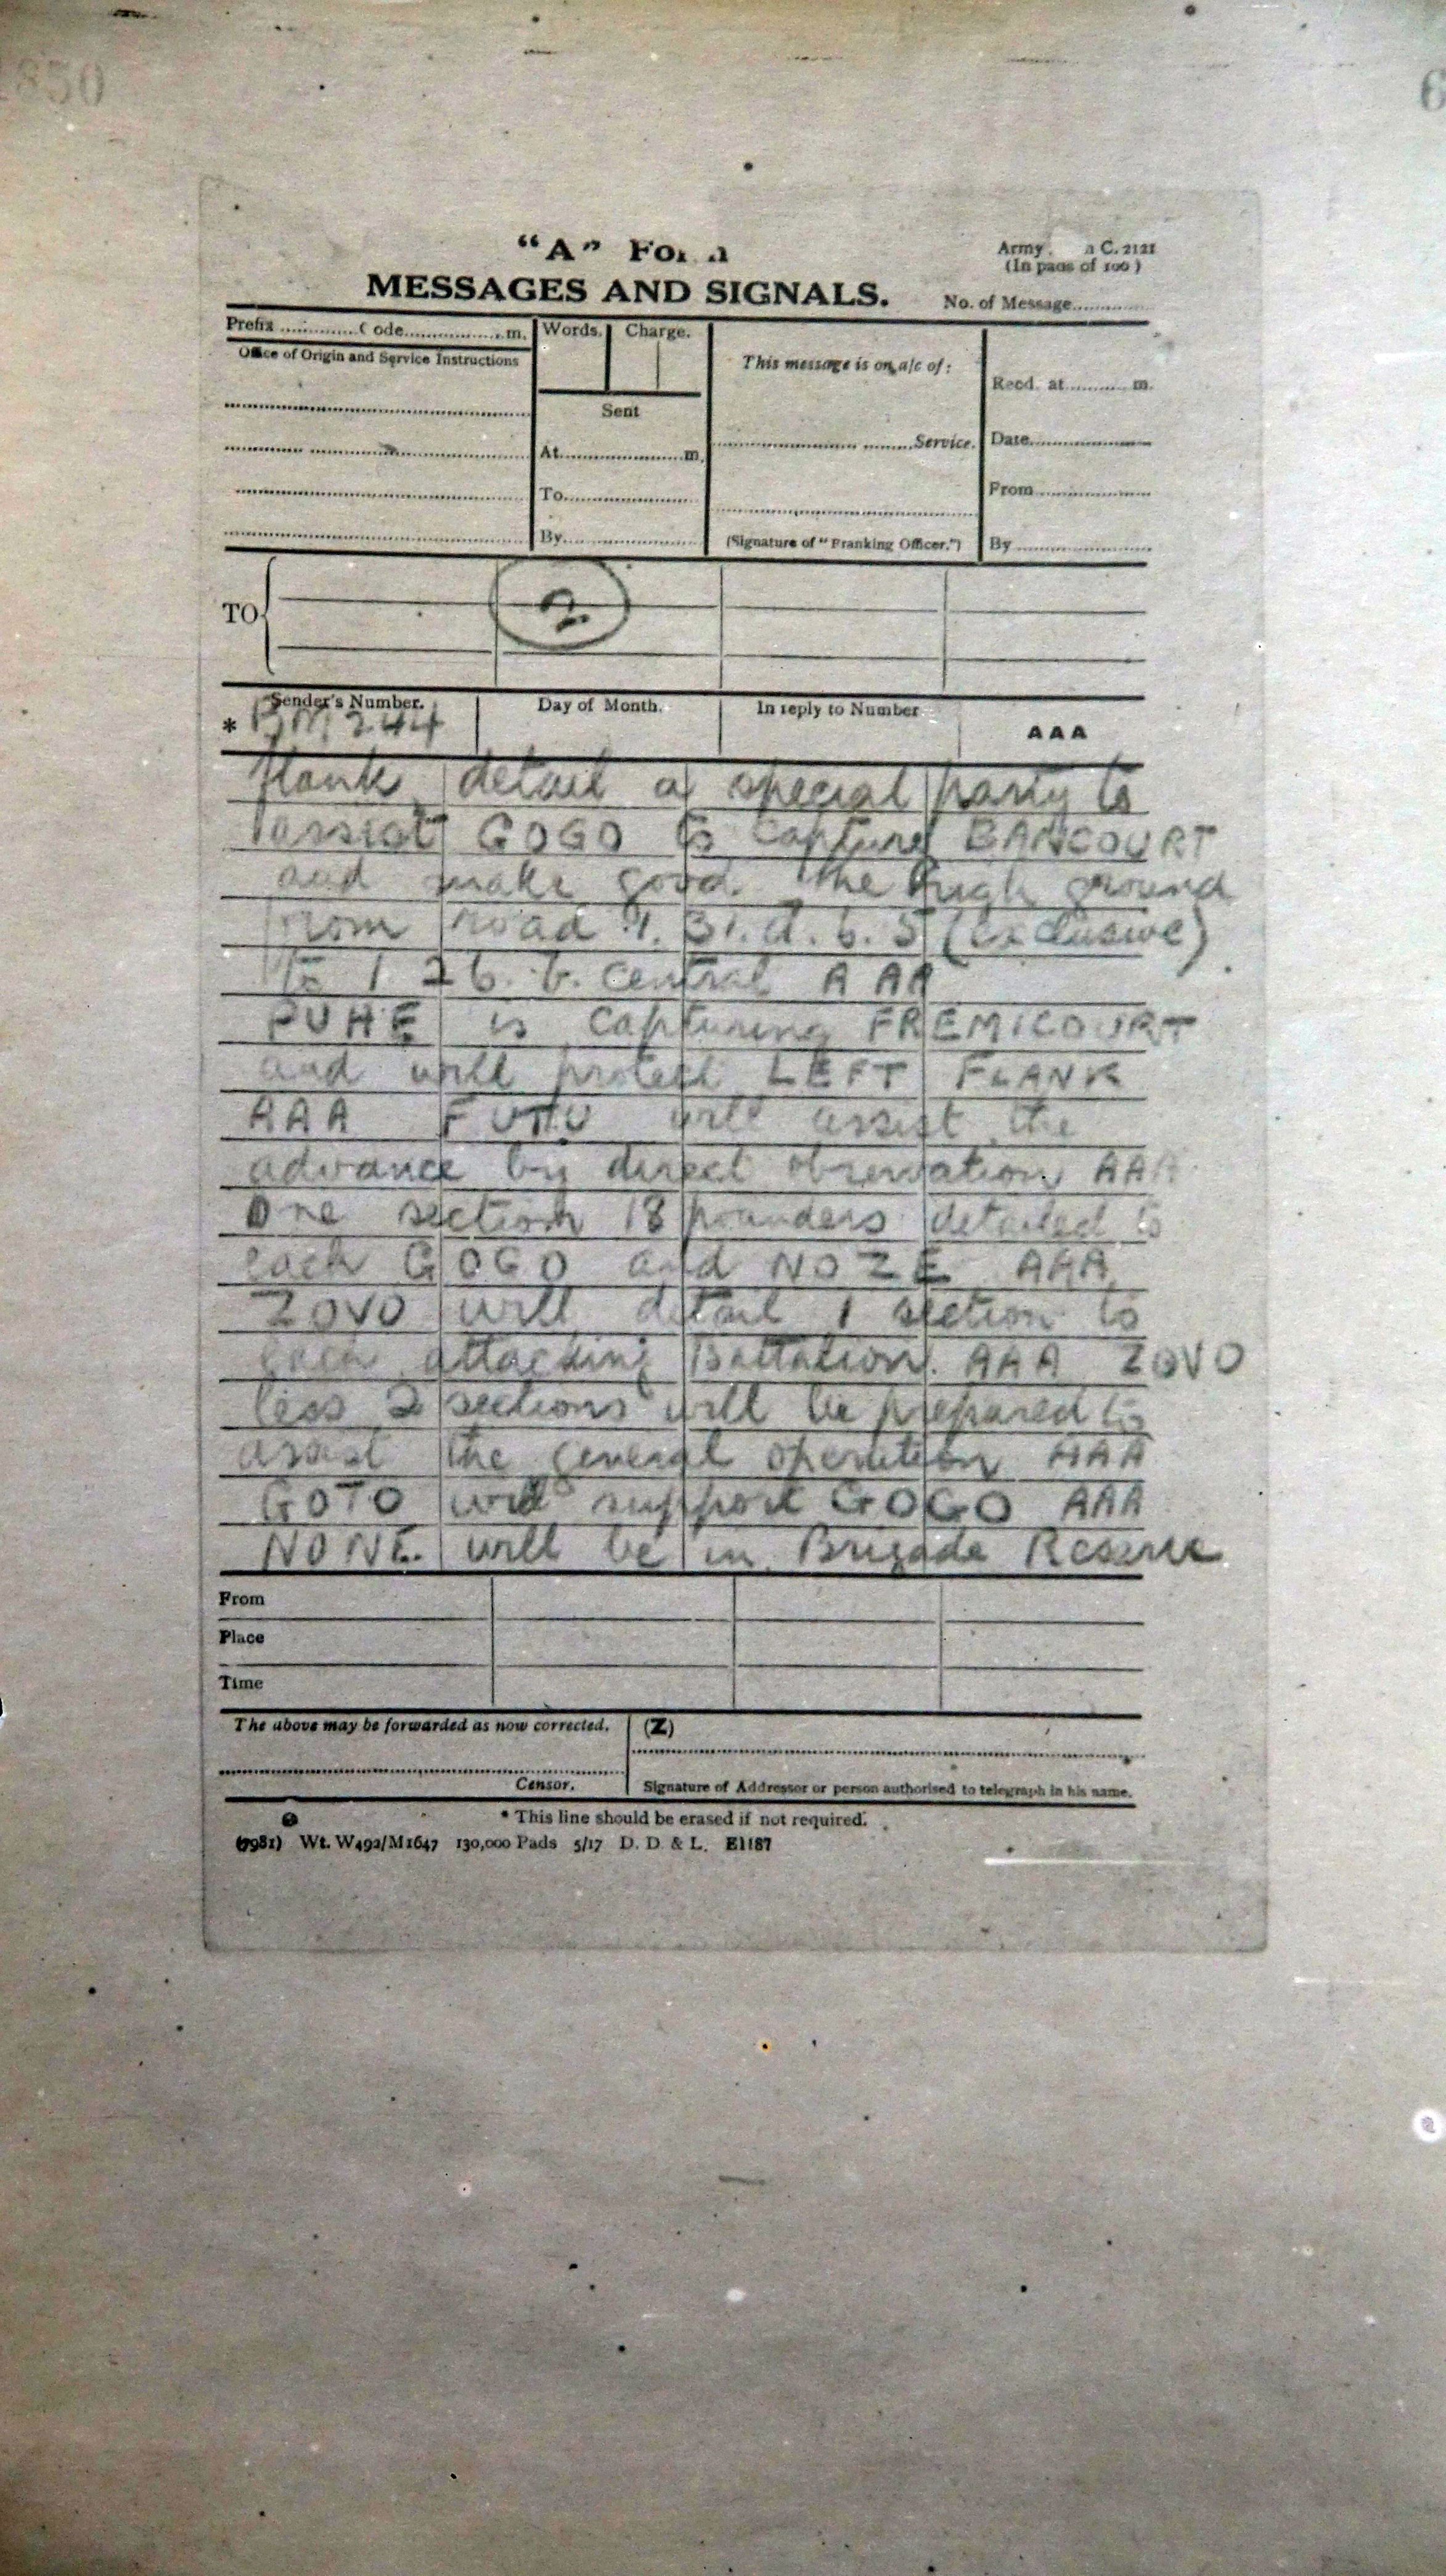 850
6
"A" Form
Army C. 2121
(In pads of 100)
MESSAGES AND SIGNALS.
No. of Message
Prefix Code m. Words. Charge.
Office of Origin and Service Instructions
This message is on a/c of:
Recd. at m.
Sent
Service. Date
At m.
To From
By (Signature of "Franking Officer.") By
TO 2
Sender's Number. Day of Month. In reply to Number AAA
* BM 244
flank detail a special party to
assist GOGO to capture BANCOURT
and make good the high ground
from road 31.d. 6.5 (exclusive)
to I 26. b. central AAA
is capturing FREMICOURT
and will protect LEFT FLANK
AAA will assist the
advance by direct observation AAA
One section 18 pounders detailed to
each GOGO and NOZE AAA
ZOVO will detail 1 section to
each attacking Battalion. AAA ZOVO
less 2 sections will be prepared to
assist the general operation AAA
GOTO will support GOGO AAA
NONE will be in Brigade Reserve
From
Place
Time
The above may be forwarded as now corrected. (Z)
Censor. Signature of Addressor or person authorised to telegraph in his name.
* This line should be erased if not required.
(7981) Wt. W492/M1647 130,000 Pads 5/17 D. D. & L. E1187